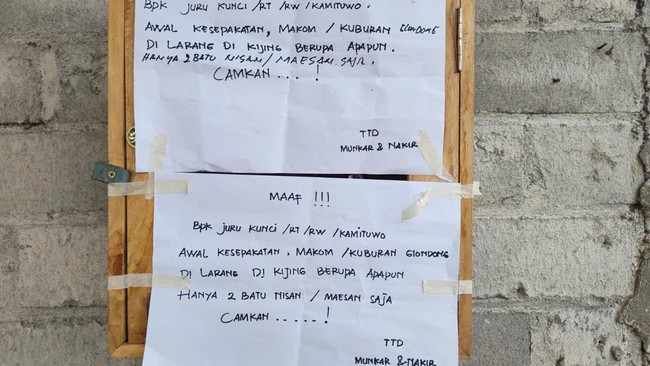 BPK JURU KUNCI /RT /RW /KAMITUWO.
AWAL KESEPAKATAN, MAKOM / KUBURAN GIONDONG
DI LARANG DI KIJING BERUPA APAPUN.
HANYA 2 BATU NISAN/ MAESAN SAJA.
CAMKAN .... !
TTD
MUNKAR & NAKIR
MAAF !!!
BPK JURU KUNCI /RT /RW /KAMITUWO
AWAL KESEPAKATAN. MAKOM /KUBURAN GIONDONG
DI LARANG DI KIJING BERUPA APAPUN
HANYA 2 BATU NISAN / MAESAN SAJA
CAMKAN ..... !
TTD
MUNKAR & NAKIR